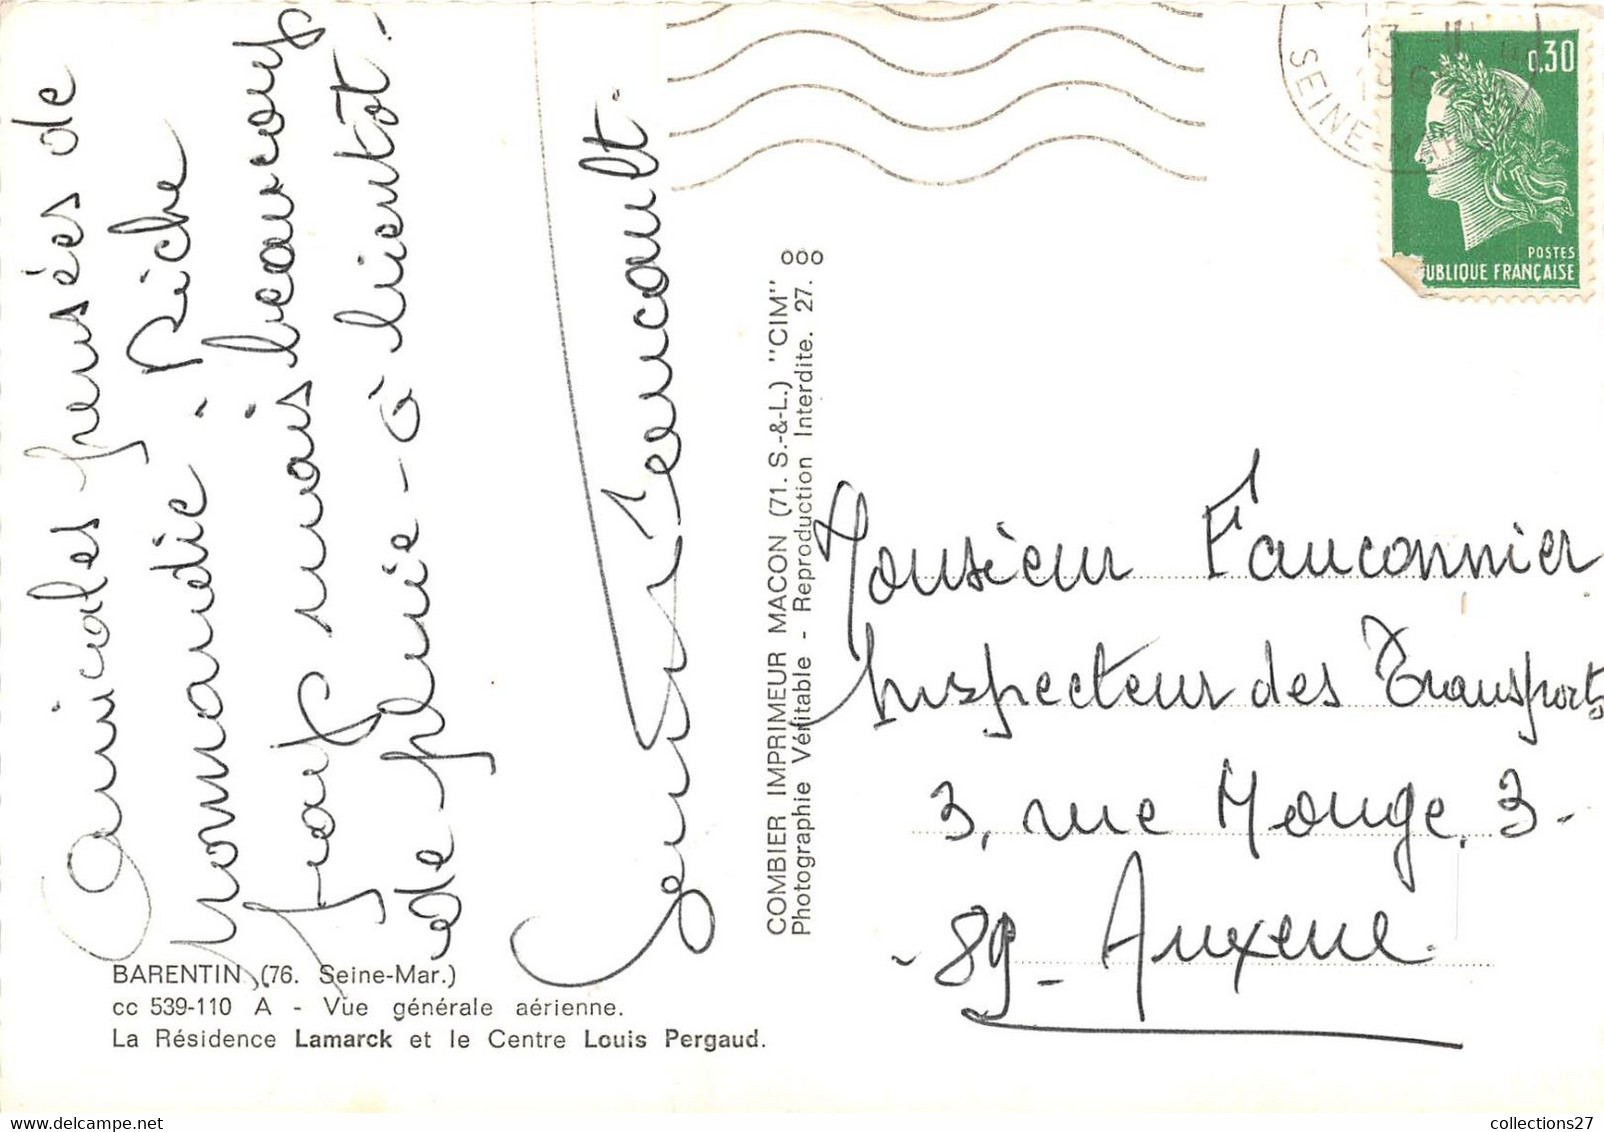 Amicales pensées de
Normandie. Riche
mais beaucoup
de pluie - à bientôt.
BARENTIN (76. Seine-Mar.)
cc 539-110 A - Vue générale aérienne.
La Résidence Lamarck et le Centre Louis Pergaud.
COMBIER IMPRIMEUR MACON (71. S.-&-L.) "CIM"
Photographie Véritable - Reproduction Interdite. 27.
000
0,30
POSTES
UBLIQUE FRANÇAISE
SEINE
Monsieur Fauconnier
Inspecteur des Transports
3, rue Monge, 3-
- 89 - Auxerre.
collections27